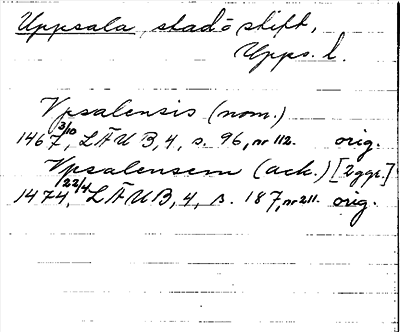 Uppsala, stad o stift,
Upps. l.
Upsalensis (nom.)
1467 3/10, LÄUB, 4, s. 96, nr 112. orig.
Upsalensem (ack.) [2 ggr.]
1474 22/4, LÄUB, 4, s. 187, nr 211. orig.